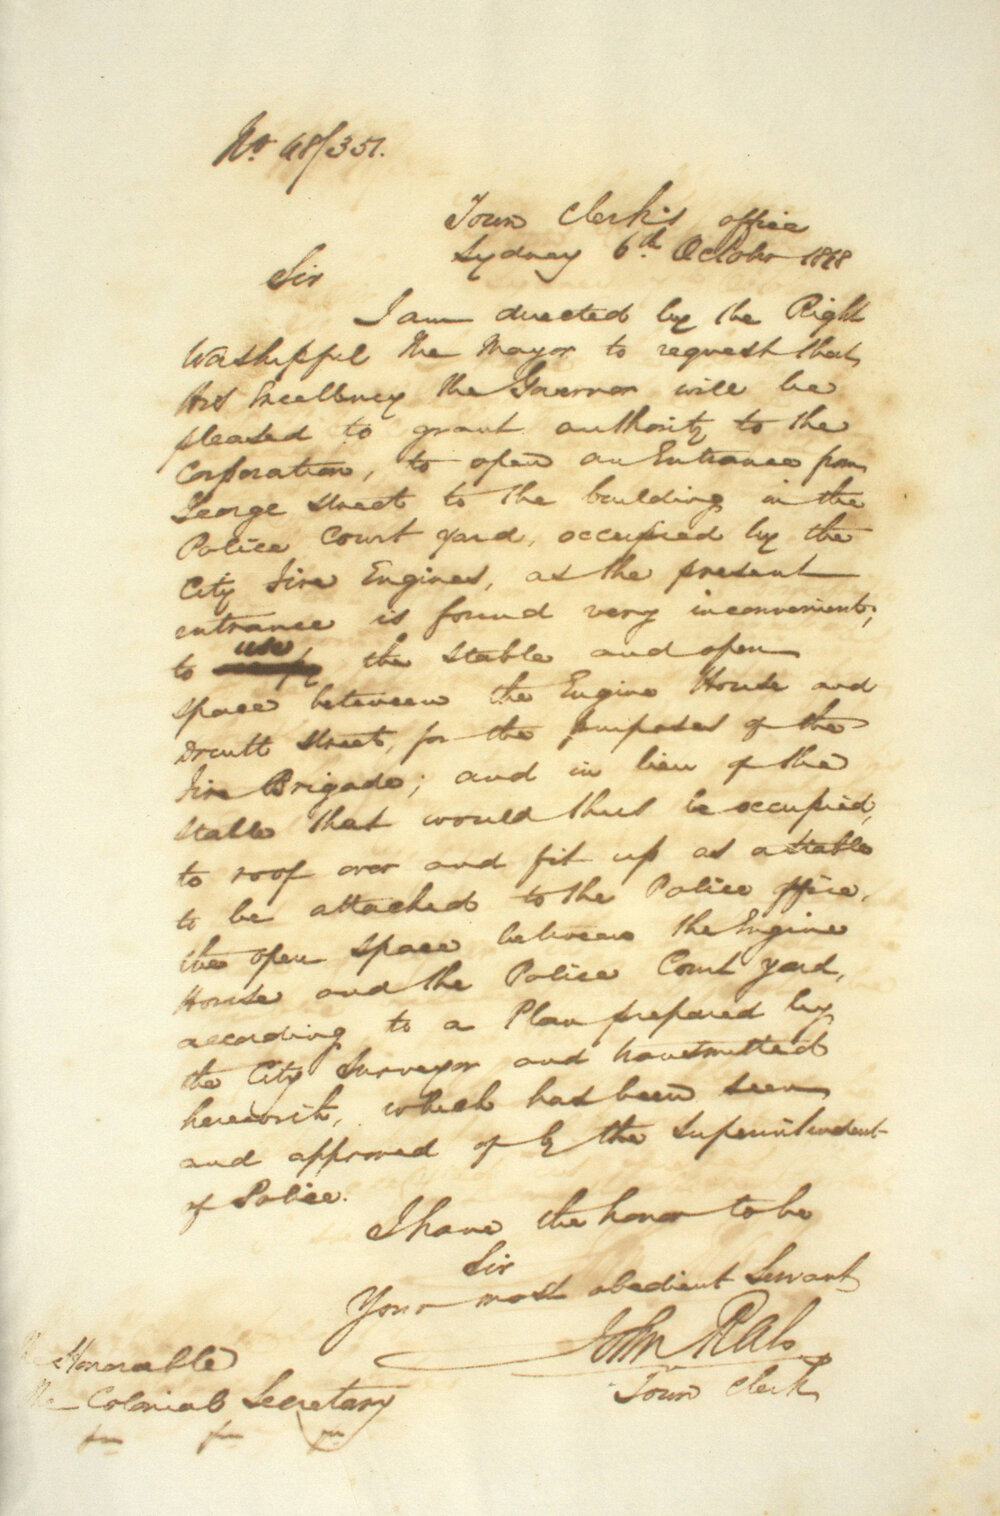 No. 48/351.
Town Clerk's office
Sydney 6th. October 1848
Sir
I am directed by the Right
Worshipful the Mayor to request that
His Excellency the Governor will be
pleased to grant authority to the
Corporation, to open an Entrance from
George Street to the building in the
Police Court yard, occupied by the
City Fire Engines, as the present
entrance is found very inconvenient;
use
to the stable and open
space between the Engine House and
Druitt Street, for the purposes of the
Fire Brigade; and in lieu of the
Stable that would thus be occupied,
to roof over and fit up as a stable
to be attached to the Police office,
the open space between the Engine
House and the Police Court yard,
according to a Plan prepared by
the City Surveyor and transmitted
herewith, which has been seen
and approved of by the Superintendent
of Police.
I have the honor to be
Sir
Your most obedient Servant
John Rae
Town Clerk
Honorable
The Colonial Secretary